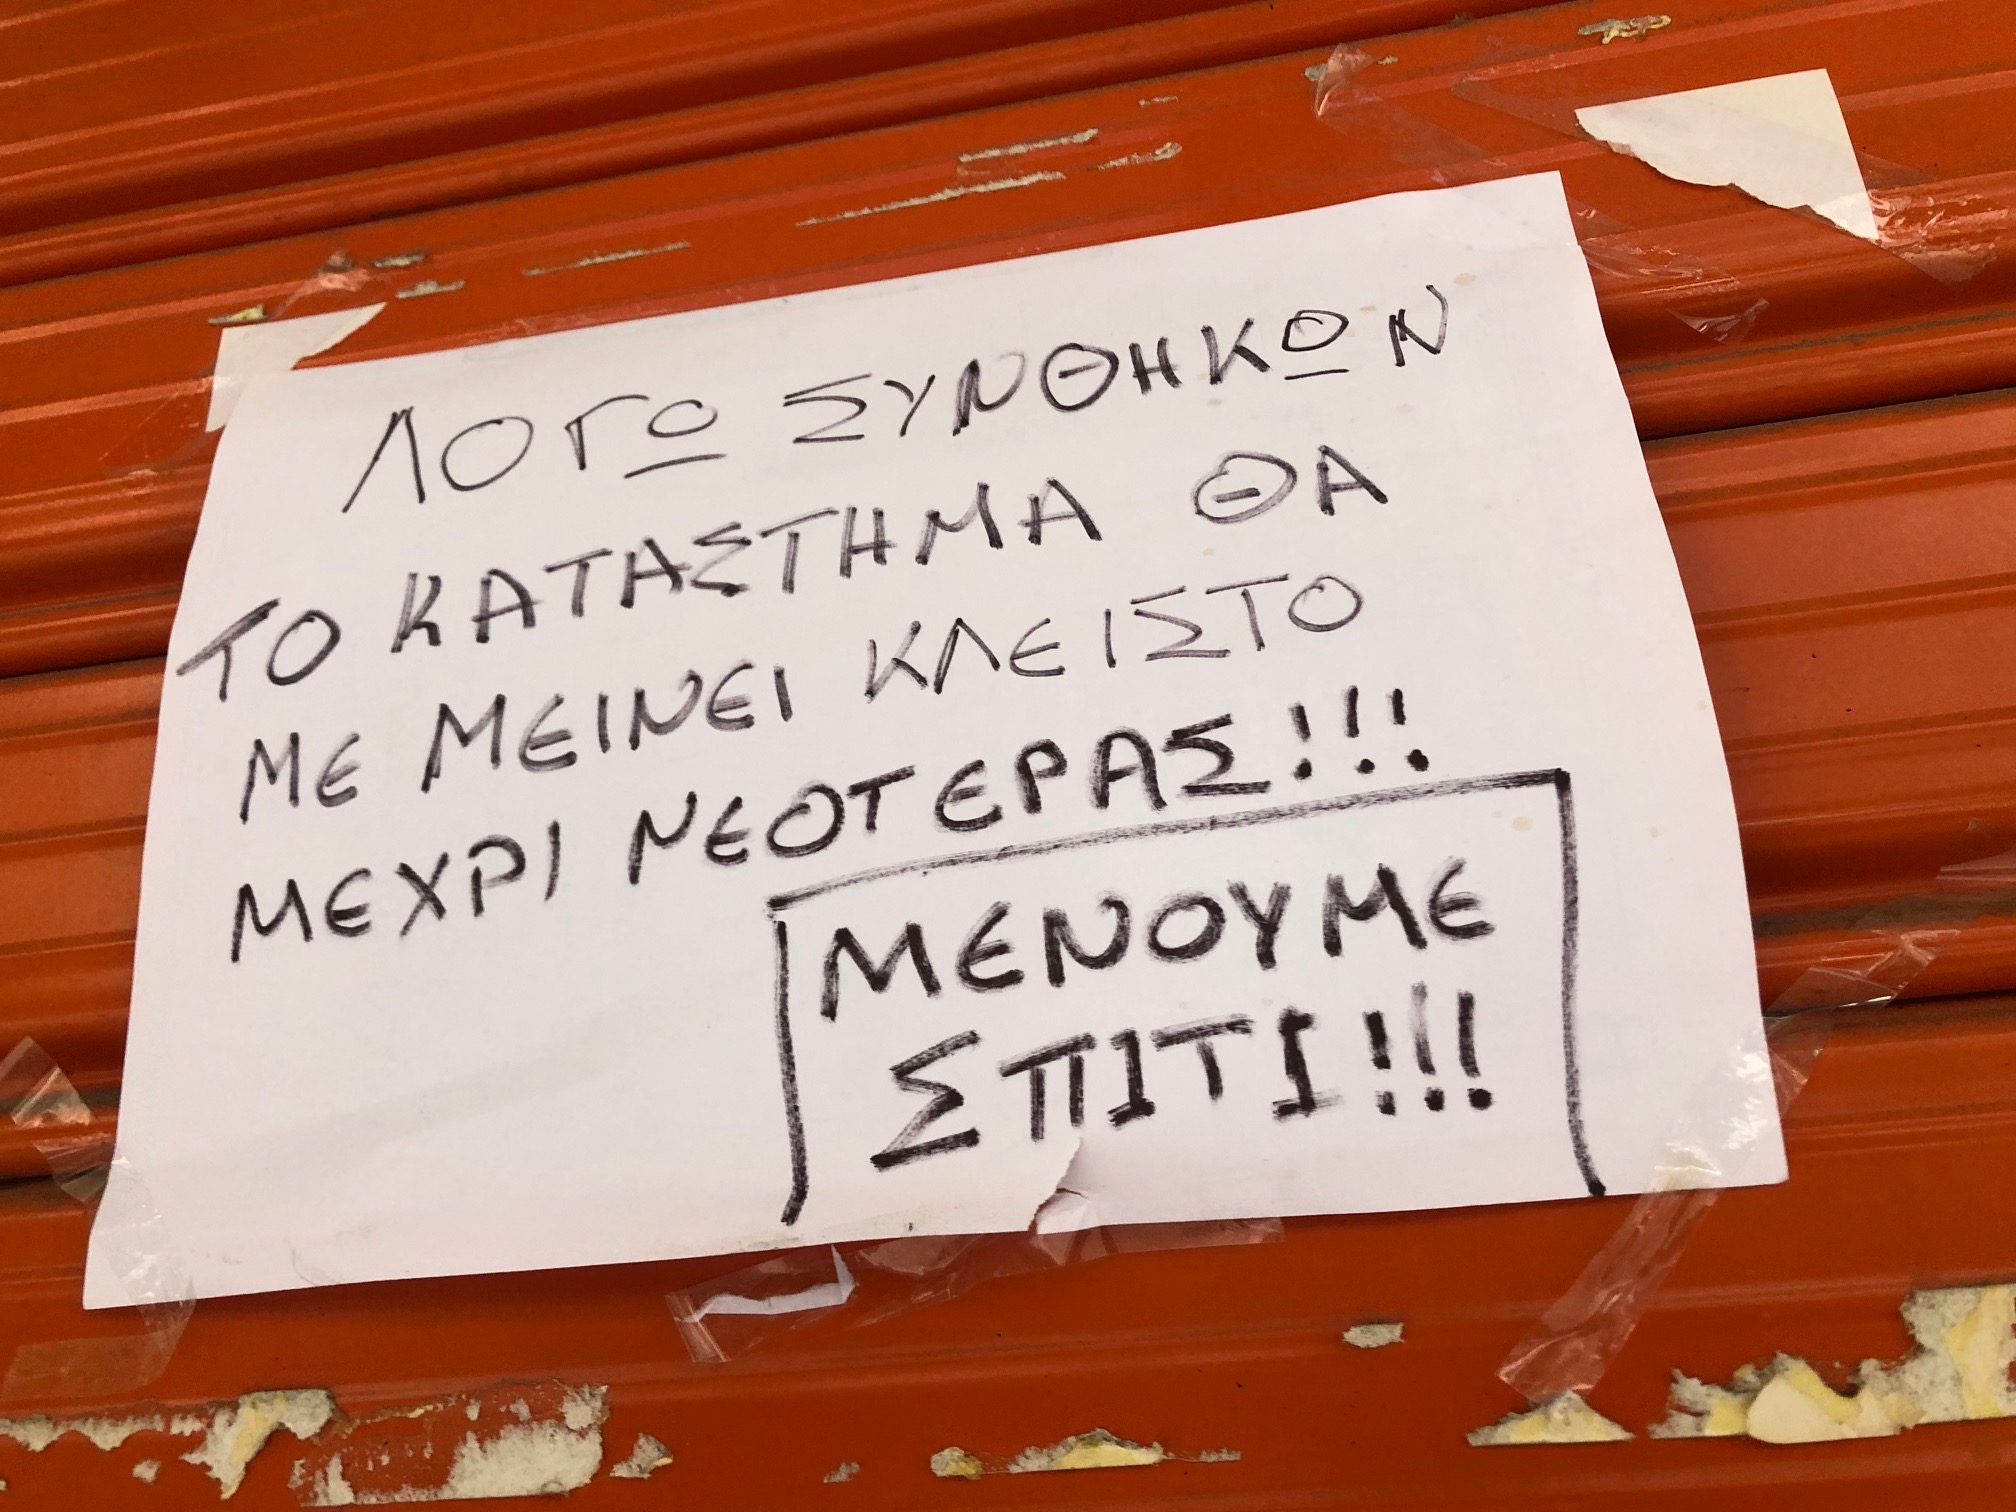 ΛΟΓΩ ΣΥΝΘΗΚΩΝ
ΤΟ ΚΑΤΑΣΤΗΜΑ ΘΑ
ΜΕ ΜΕΙΝΕΙ ΚΛΕΙΣΤΟ
ΜΕΧΡΙ ΝΕΟΤΕΡΑΣ!!!
ΜΕΝΟΥΜΕ
ΣΠΙΤΙ!!!